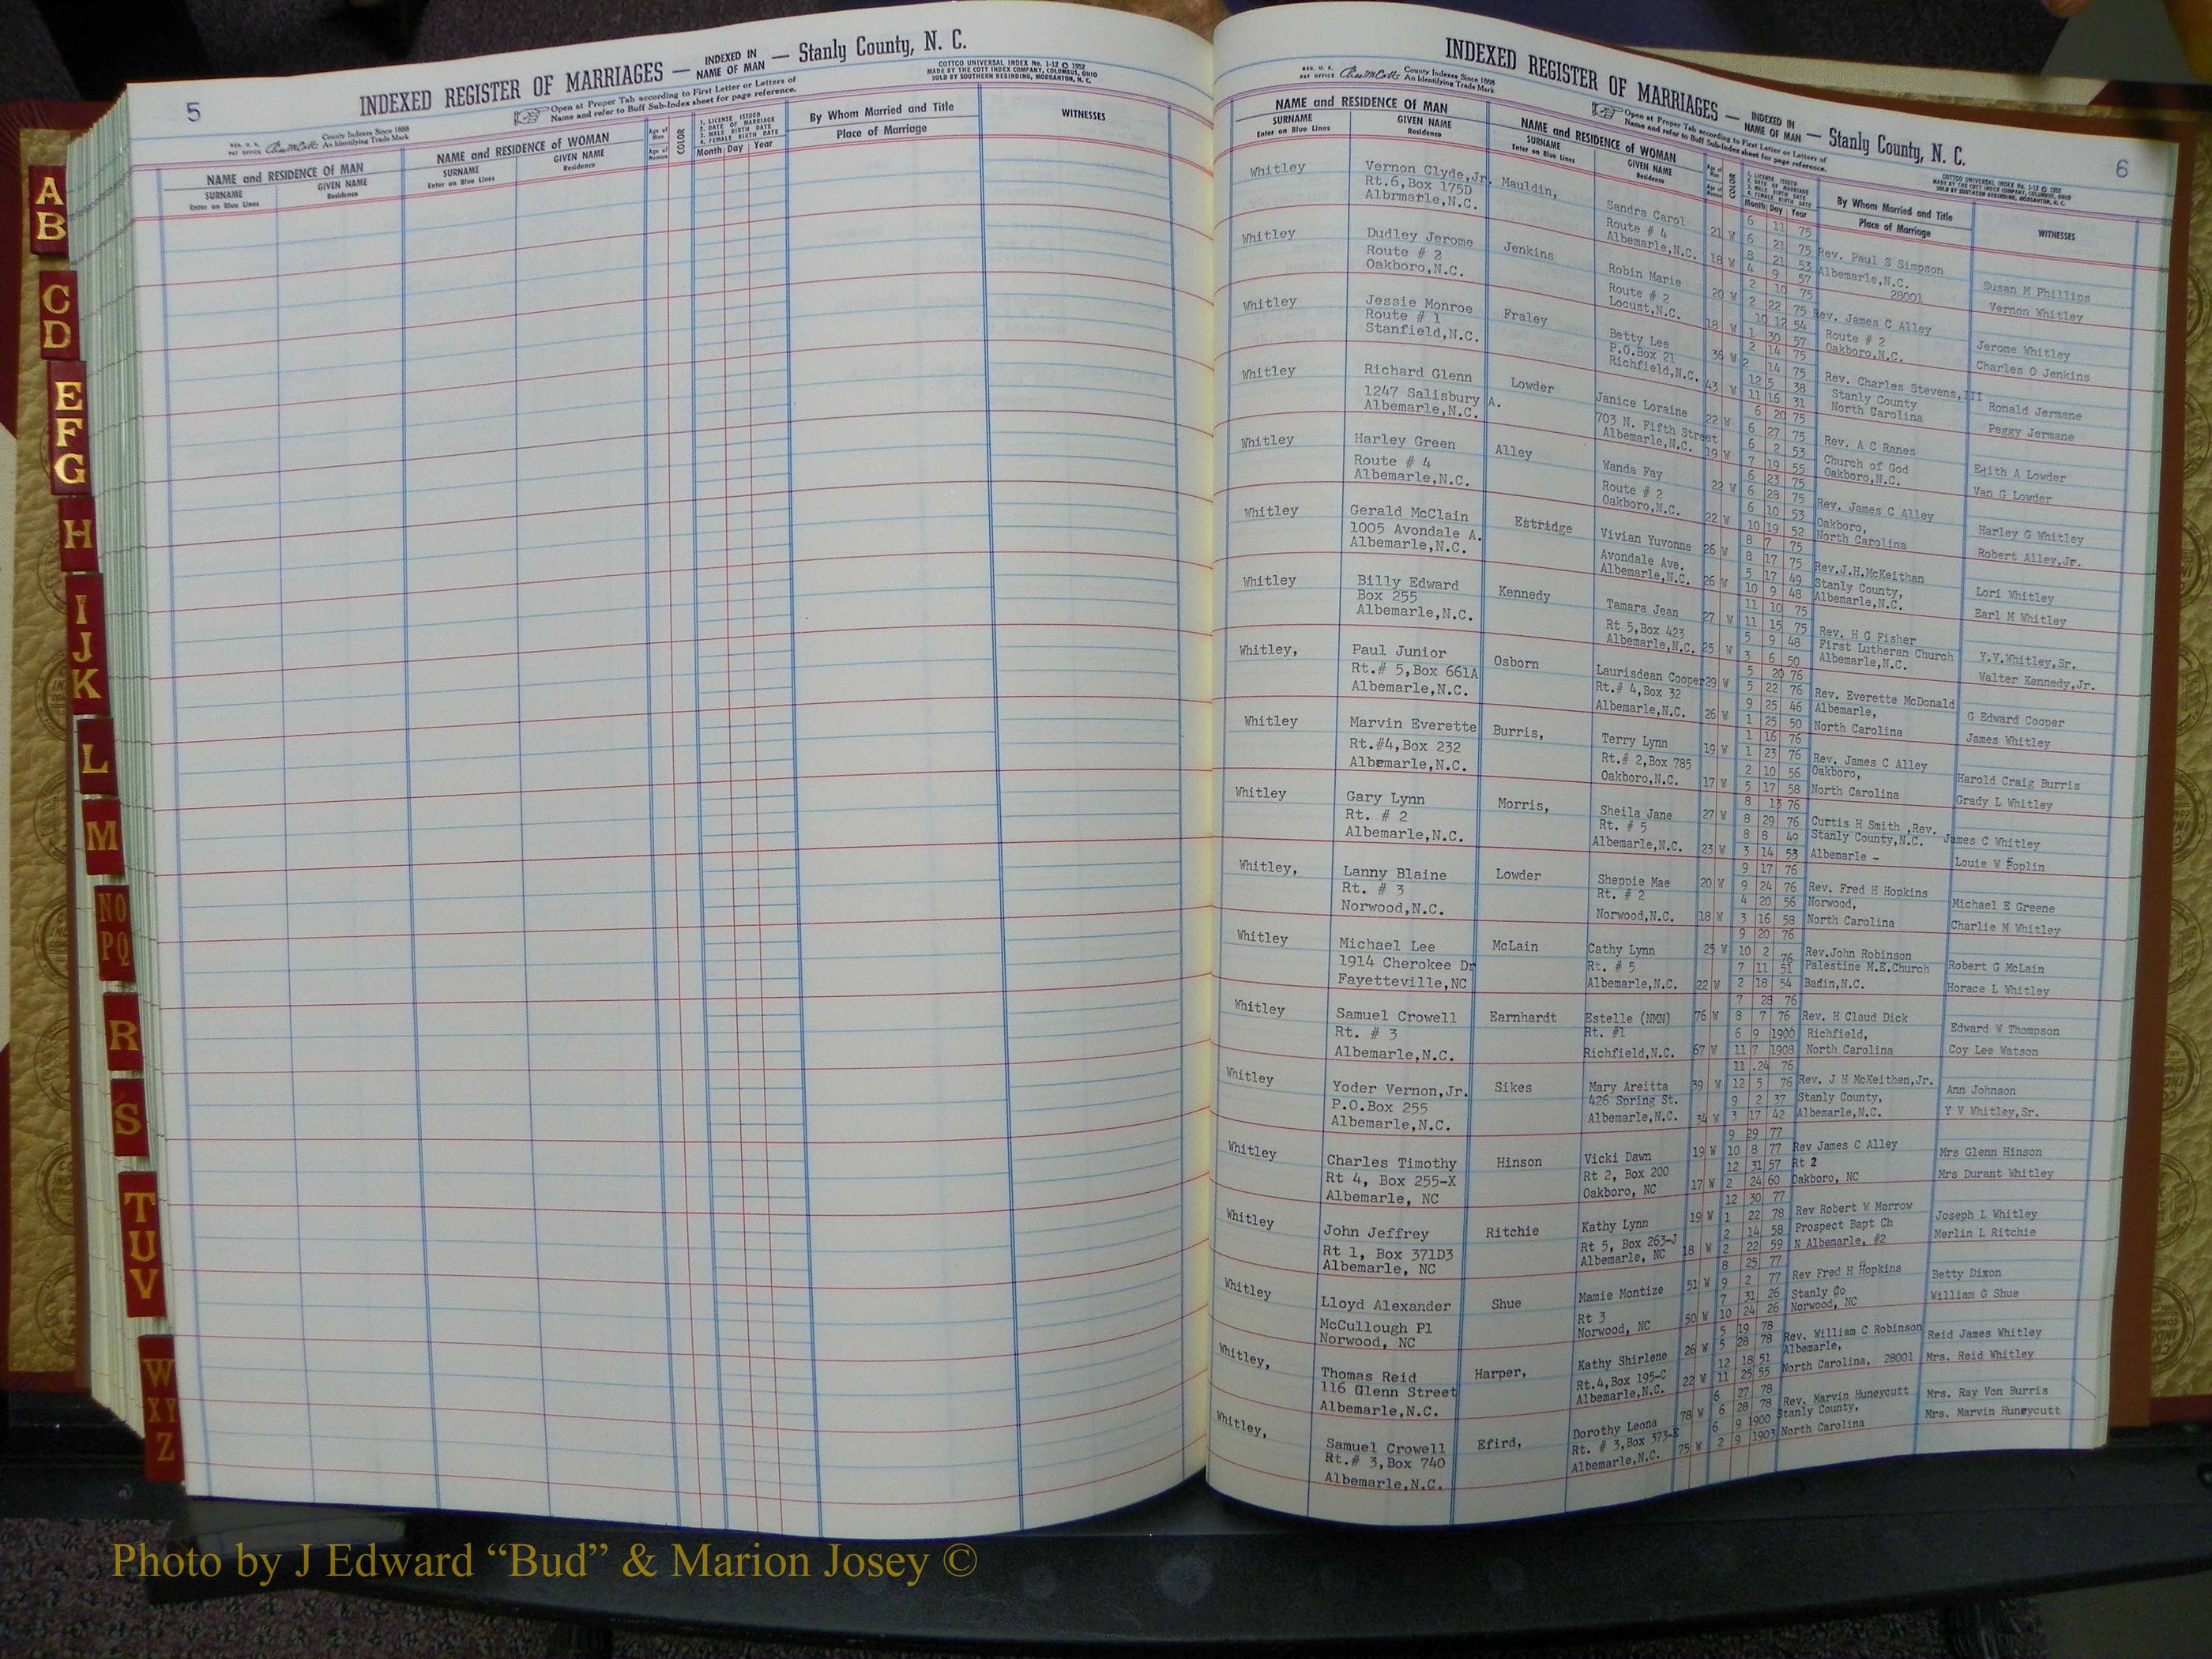 5
INDEXED REGISTER OF MARRIAGES — INDEXED IN NAME OF MAN — Stanly County, N. C.
Open at Proper Tab according to First Letter or Letters of
Name and refer to Buff Sub-Index sheet for page reference.
COTTCO UNIVERSAL INDEX No. 1-12 © 1952
MADE BY THE COTT INDEX COMPANY, COLUMBUS, OHIO
SOLD BY SOUTHERN REBINDING, MORGANTON, N. C.
REG. U. S. PAT OFFICE
County Indexes Since 1888
An Identifying Trade Mark
NAME and RESIDENCE OF MAN
SURNAME GIVEN NAME
Enter on Blue Lines Residence
NAME and RESIDENCE OF WOMAN
SURNAME GIVEN NAME
Enter on Blue Lines Residence
Age of Man
Age of Woman
COLOR
1. LICENSE ISSUED
2. DATE OF MARRIAGE
3. MALE BIRTH DATE
4. FEMALE BIRTH DATE
Month Day Year
By Whom Married and Title
Place of Marriage
WITNESSES
A
B
C
D
E
F
G
H
I
J
K
L
M
NO
PQ
R
S
T
U
V
W
XY
Z
INDEXED REGISTER OF MARRIAGES — INDEXED IN NAME OF MAN — Stanly County, N. C.
6
REG. U. S. PAT OFFICE
County Indexes Since 1888
An Identifying Trade Mark
Open at Proper Tab according to First Letter or Letters of
Name and refer to Buff Sub-Index sheet for page reference.
COTTCO UNIVERSAL INDEX No. 1-12 © 1952
MADE BY THE COTT INDEX COMPANY, COLUMBUS, OHIO
SOLD BY SOUTHERN REBINDING, MORGANTON, N. C.
NAME and RESIDENCE OF MAN
SURNAME GIVEN NAME
Enter on Blue Lines Residence
NAME and RESIDENCE OF WOMAN
SURNAME GIVEN NAME
Enter on Blue Lines Residence
Age of Man
Age of Woman
COLOR
1. LICENSE ISSUED
2. DATE OF MARRIAGE
3. MALE BIRTH DATE
4. FEMALE BIRTH DATE
Month Day Year
By Whom Married and Title
Place of Marriage
WITNESSES
Whitley Vernon Clyde,Jr. Mauldin, Sandra Carol 21 W 6 11 75
Rt.6,Box 175D Route # 4 6 21 75 Rev. Paul S Simpson Susan M Phillips
Albrmarle,N.C. Albemarle,N.C. 18 W 8 21 53 Albemarle,N.C. Vernon Whitley
4 9 57 28001
Whitley Dudley Jerome Jenkins Robin Marie 20 W 2 10 75
Route # 2 Route # 2 2 22 75 Rev. James C Alley Jerome Whitley
Oakboro,N.C. Locust,N.C. 18 W 10 12 54 Route # 2 Charles O Jenkins
1 30 57 Oakboro,N.C.
Whitley Jessie Monroe Fraley Betty Lee 36 W 2 14 75
Route # 1 P.O.Box 21 2 14 75 Rev. Charles Stevens,III Ronald Jermane
Stanfield,N.C. Richfield,N.C. 43 W 12 5 38 Stanly County Peggy Jermane
11 16 31 North Carolina
Whitley Richard Glenn Lowder Janice Loraine 22 W 6 20 75
1247 Salisbury A. 703 N. Fifth Street 6 27 75 Rev. A C Ranes Edith A Lowder
Albemarle,N.C. Albemarle,N.C. 19 W 6 2 53 Church of God Van G Lowder
7 19 55 Oakboro,N.C.
Whitley Harley Green Alley Wanda Fay 22 W 6 23 75
Route # 4 Route # 2 6 28 75 Rev. James C Alley Harley G Whitley
Albemarle,N.C. Oakboro,N.C. 22 W 6 10 53 Oakboro, Robert Alley,Jr.
10 19 52 North Carolina
Whitley Gerald McClain Estridge Vivian Yuvonne 26 W 8 7 75
1005 Avondale A. Avondale Ave. 8 17 75 Rev.J.H.McKeithan Lori Whitley
Albemarle,N.C. Albemarle,N.C. 26 W 5 17 49 Stanly County, Earl M Whitley
10 9 48 Albemarle,N.C.
Whitley Billy Edward Kennedy Tamara Jean 27 W 11 10 75
Box 255 Rt 5,Box 423 11 15 75 Rev. H G Fisher Y.V.Whitley,Sr.
Albemarle,N.C. Albemarle,N.C. 25 W 5 9 48 First Lutheran Church Walter Kennedy,Jr.
3 6 50 Albemarle,N.C.
Whitley, Paul Junior Osborn Laurisdean Cooper 29 W 5 20 76
Rt.# 5,Box 661A Rt.# 4,Box 32 5 22 76 Rev. Everette McDonald G Edward Cooper
Albemarle,N.C. Albemarle,N.C. 26 W 9 25 46 Albemarle, James Whitley
1 25 50 North Carolina
Whitley Marvin Everette Burris, Terry Lynn 19 W 1 16 76
Rt.#4,Box 232 Rt.# 2,Box 785 1 23 76 Rev. James C Alley Harold Craig Burris
Albemarle,N.C. Oakboro,N.C. 17 W 2 10 56 Oakboro, Grady L Whitley
5 17 58 North Carolina
Whitley Gary Lynn Morris, Sheila Jane 27 W 8 13 76
Rt. # 2 Rt. # 5 8 29 76 Curtis H Smith ,Rev. James C Whitley
Albemarle,N.C. Albemarle,N.C. 23 W 8 8 49 Stanly County,N.C. Louie W Poplin
3 14 53 Albemarle -
Whitley, Lanny Blaine Lowder Sheppie Mae 20 W 9 17 76
Rt. # 3 Rt. # 2 9 24 76 Rev. Fred H Hopkins Michael E Greene
Norwood,N.C. Norwood,N.C. 18 W 4 20 56 Norwood, Charlie M Whitley
3 16 58 North Carolina
Whitley Michael Lee McLain Cathy Lynn 25 W 9 20 76
1914 Cherokee Dr Rt. # 5 10 2 76 Rev.John Robinson Robert G McLain
Fayetteville,NC Albemarle,N.C. 22 W 7 11 51 Palestine M.E.Church Horace L Whitley
2 18 54 Badin,N.C.
Whitley Samuel Crowell Earnhardt Estelle (NMN) 76 W 7 28 76
Rt. # 3 Rt. #1 8 7 76 Rev. H Claud Dick Edward W Thompson
Albemarle,N.C. Richfield,N.C. 67 W 6 9 1900 Richfield, Coy Lee Watson
11 7 1908 North Carolina
Whitley Yoder Vernon,Jr. Sikes Mary Areitta 39 W 11 .24 76
P.O.Box 255 426 Spring St. 12 5 76 Rev. J H McKeithen,Jr. Ann Johnson
Albemarle,N.C. Albemarle,N.C. 34 W 9 2 37 Stanly County, Y V Whitley,Sr.
3 17 42 Albemarle,N.C.
Whitley Charles Timothy Hinson Vicki Dawn 19 W 9 29 77
Rt 4, Box 255-X Rt 2, Box 200 10 8 77 Rev James C Alley Mrs Glenn Hinson
Albemarle, NC Oakboro, NC 17 W 12 31 57 Rt 2 Mrs Durant Whitley
2 24 60 Oakboro, NC
Whitley John Jeffrey Ritchie Kathy Lynn 19 W 12 30 77
Rt 1, Box 371D3 Rt 5, Box 263-J 1 22 78 Rev Robert W Morrow Joseph L Whitley
Albemarle, NC Albemarle, NC 18 W 2 14 58 Prospect Bapt Ch Merlin L Ritchie
2 22 59 N Albemarle, #2
Whitley Lloyd Alexander Shue Mamie Montize 51 W 8 25 77
McCullough Pl Rt 3 9 2 77 Rev Fred H Hopkins Betty Dixon
Norwood, NC Norwood, NC 50 W 7 31 26 Stanly Co William G Shue
10 24 26 Norwood, NC
Whitley, Thomas Reid Harper, Kathy Shirlene 26 W 5 19 78
116 Glenn Street Rt.4,Box 195-C 5 28 78 Rev. William C Robinson Reid James Whitley
Albemarle,N.C. Albemarle,N.C. 22 W 12 18 51 Albemarle, Mrs. Reid Whitley
11 25 55 North Carolina, 28001
Whitley, Samuel Crowell Efird, Dorothy Leona 78 W 6 27 78
Rt.# 3,Box 740 Rt. # 3,Box 373-E 6 28 78 Rev. Marvin Huneycutt Mrs. Ray Von Burris
Albemarle,N.C. Albemarle,N.C. 75 W 6 9 1900 Stanly County, Mrs. Marvin Huneycutt
2 9 1903 North Carolina
Photo by J Edward “Bud” & Marion Josey ©